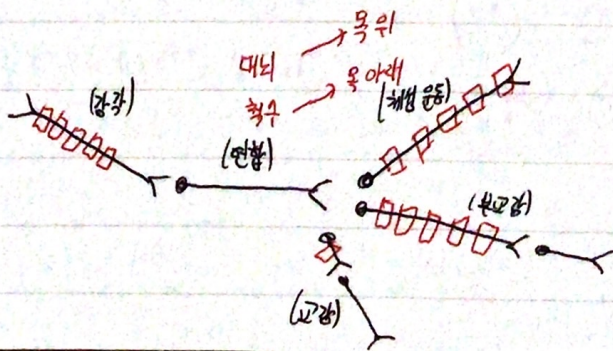 대뇌 → 목 위
척수 → 목 아래
(감각)
(연합)
(체성 운동)
(부교감)
(교감)